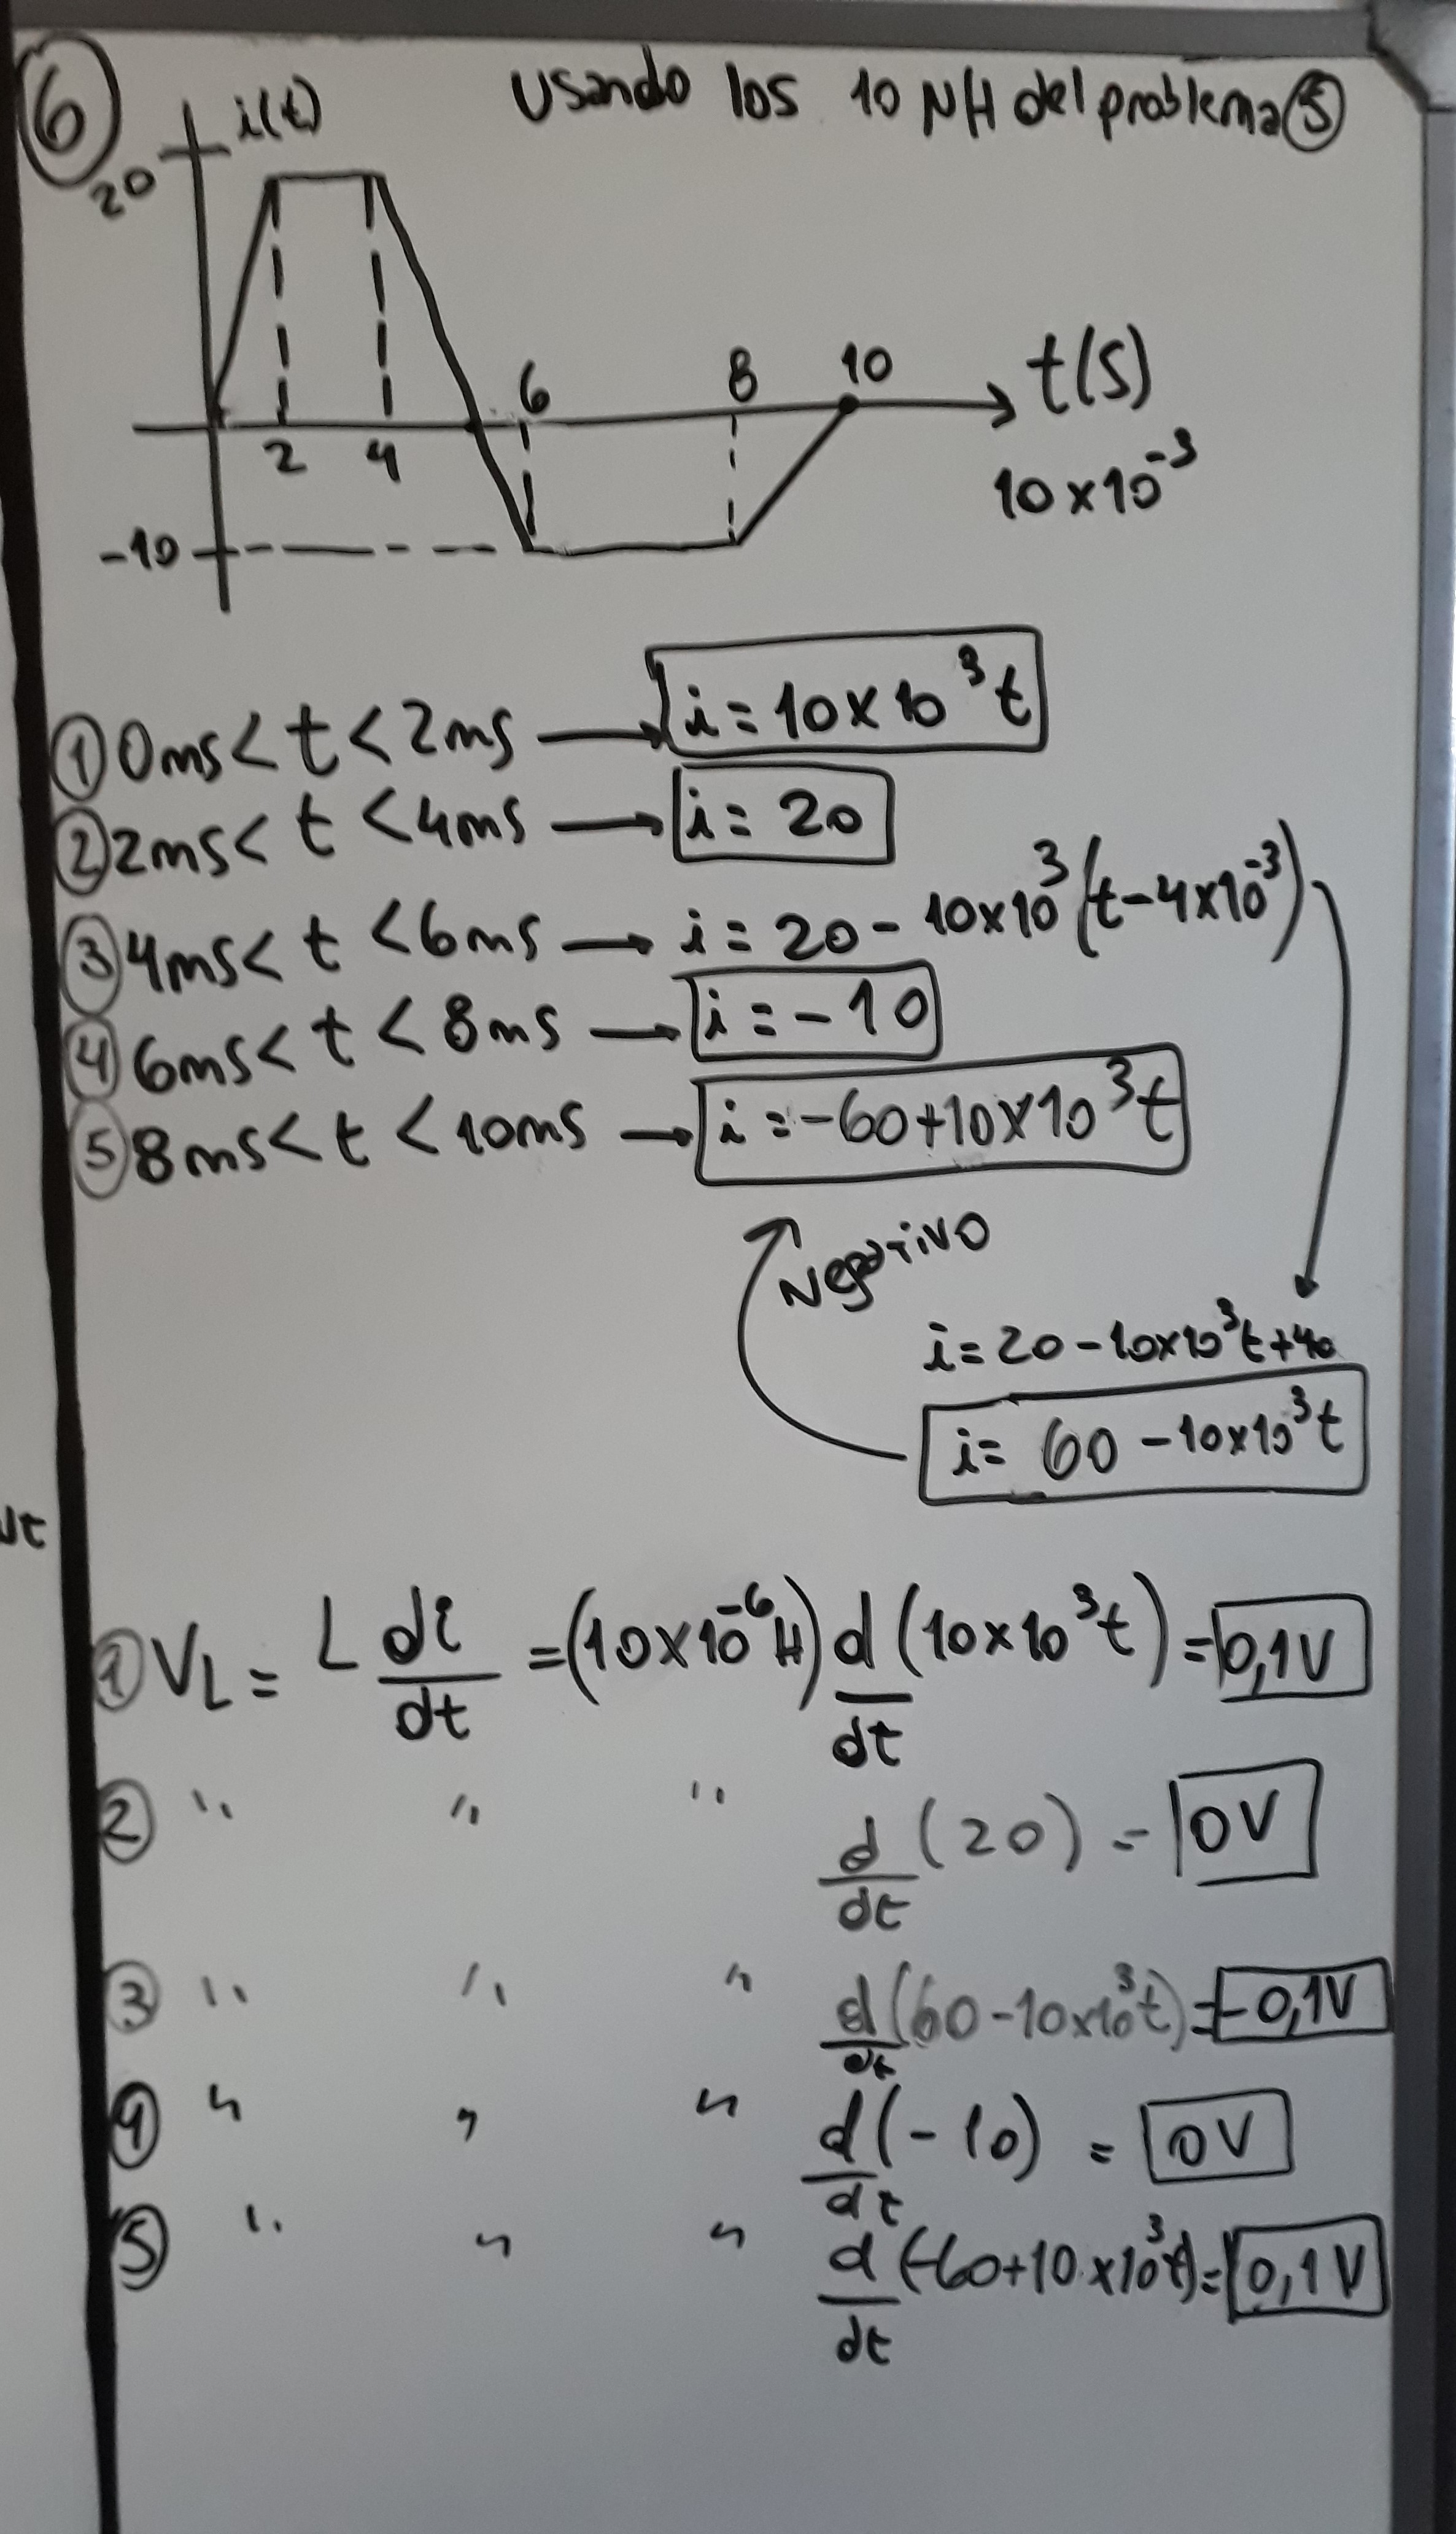 ⑥ i(t) Usando los 10 NH del problema ⑤
20
6 8 10 t(s)
2 4 10x10⁻³
-10
① 0ms < t < 2ms → i = 10x10³t
② 2ms < t < 4ms → i = 20
③ 4ms < t < 6ms → i = 20 - 10x10³(t-4x10⁻³)
④ 6ms < t < 8ms → i = -10
⑤ 8ms < t < 10ms → i = -60+10x10³t
Negativo
i = 20 - 10x10³t+40
i = 60 - 10x10³t
dt
① VL = L di/dt = (10x10⁻⁶H) d/dt (10x10³t) = 0,1V
② " " " d/dt (20) = 0V
③ " " " d/dt (60-10x10³t) = -0,1V
④ " " " d/dt (-10) = 0V
⑤ " " " d/dt (-60+10x10³t) = 0,1V